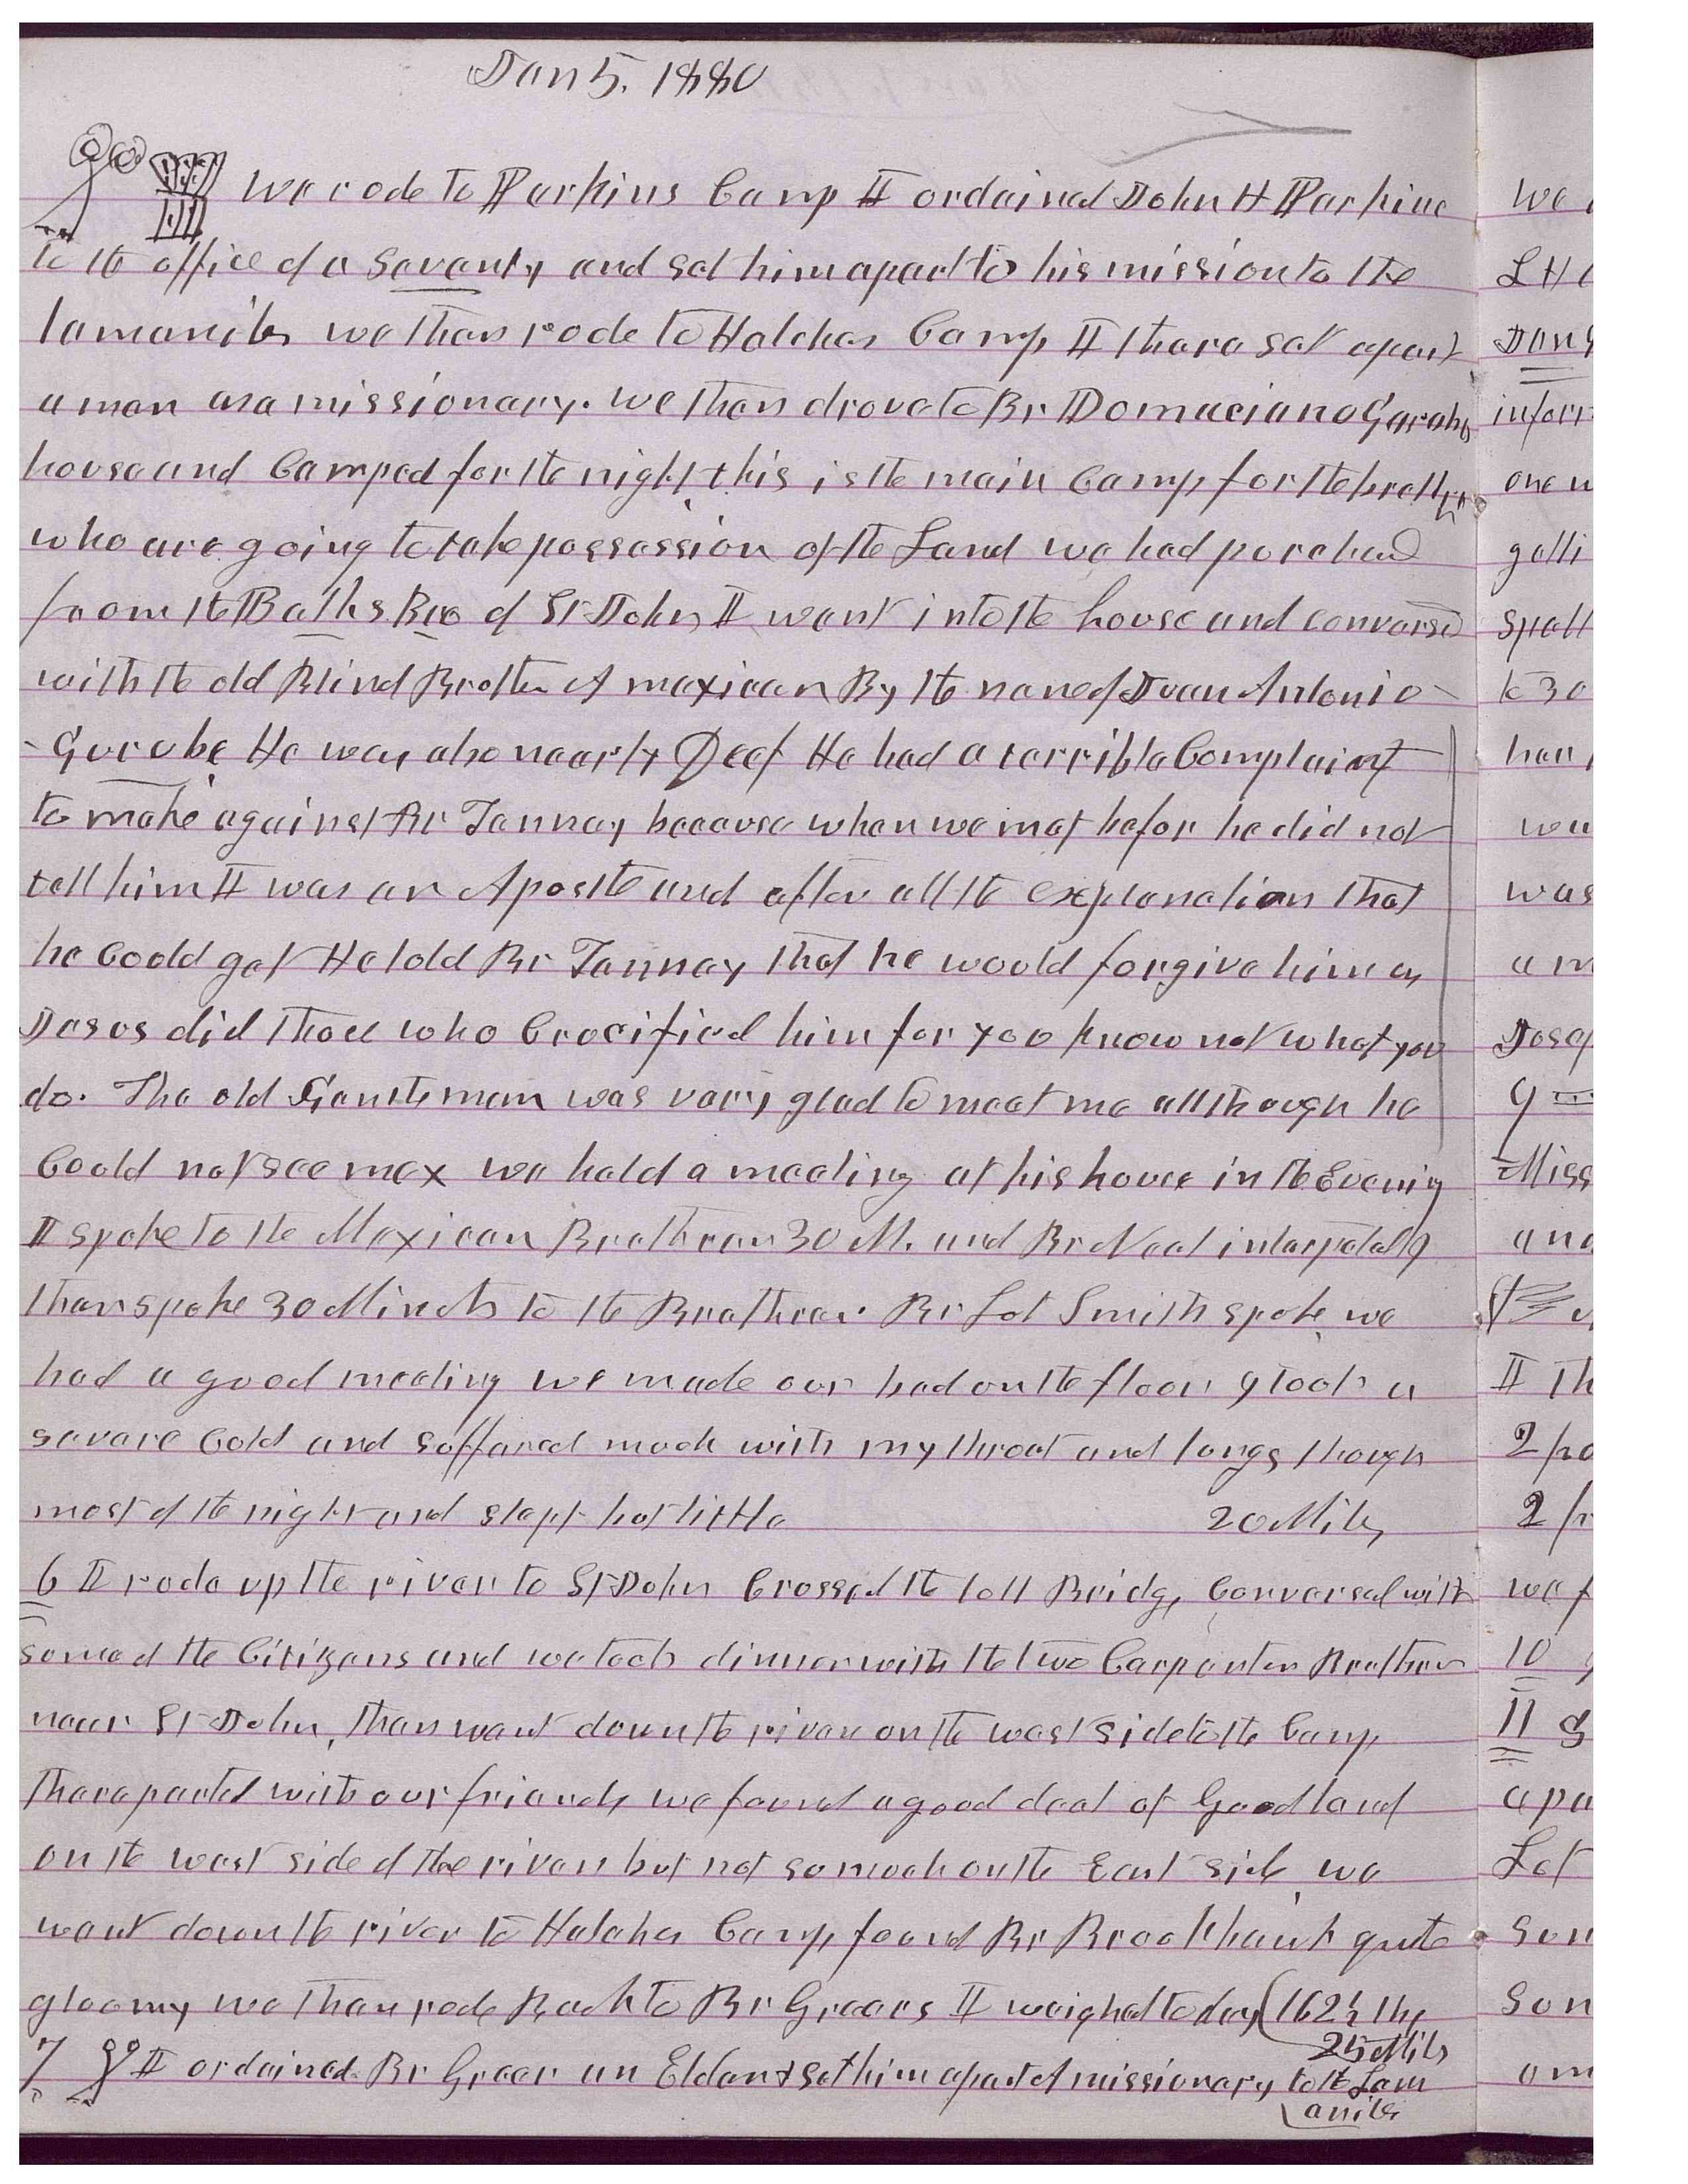 Jan 5. 1880
we rode to Perkins Camp I ordained John H Perkins
to the office of a Seventy and set him apart to his mission to the
lamanites we then rode to Hatches Camp I there set apart
a man as a missionary. we then drove to Br Domaciano Garabe
house and Camped for the night this is the main Camp for the brethren
who are going to take possession of the Land we had purchased
from the Baths Bro of St John I went into the house and conversed
with the old Blind Brother A mexican By the name of Juan Antonio
Gurube He was also nearly Deef He had a terrible Complaint
to make against Br Tenney because when we met befor he did not
tell him I was an Apostle and after all the explanation that
he Could get He told Br Tenney that he would forgive him as
Jesus did those who Crucified him for you know not what you
do. The old Gentleman was very glad to meet me allthough he
Could not see me x we held a meeting at his house in the Evenig
I spoke to the Mexican Brethren 30 M. and Br Neal interpeted I
then spoke 30 Minuts to the Brethren Br Lot Smith spoke we
had a good meeting we made our bed on the floor I took a
severe Cold and suffered much with my throat and lungs though
most of the night and slept but little 20 Miles
6 I rode up the river to St John Crossed the toll Bridg, Conversed with
some of the Citizens and we took dinner with the two Carpenter Brothers
near St John, then went down the river on the west side to the Camp
there parted with our friends we found a good deal of Good land
on the west side of the river but not so much on the East side we
went down the river to Hatches Camp found Br Brookhank quite
gloomy we then rode Back to Br Greers I weighed to day (162½ lbs
25 Miles
7 I ordained Br Greer an Elder & set him apart A missionary to the Lam
anites